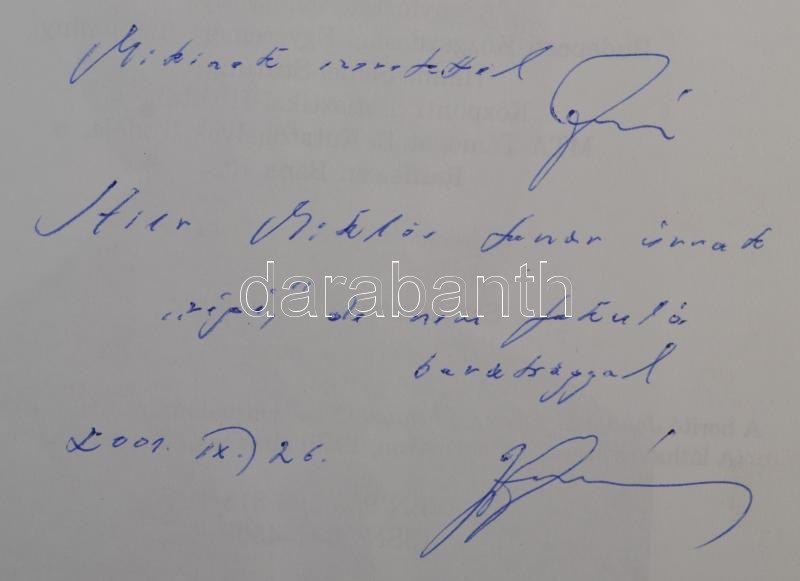 Mikinek szeretettel
Hier Miklós tanár úrnak
régi, de nem fakuló
barátsággal
2001. IX. 26.
darabanth